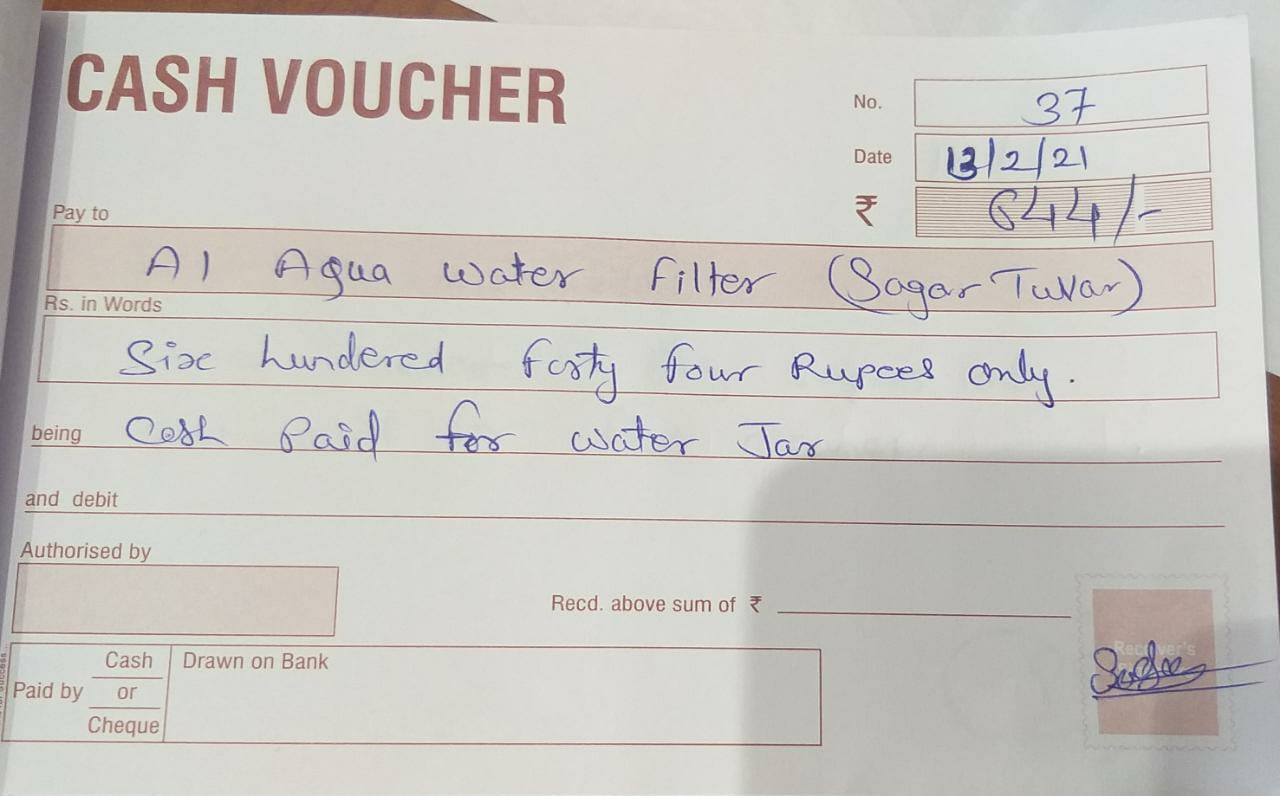 CASH VOUCHER
No. 37
Date 13/2/21
₹ 644/-
Pay to
A1 Aqua water Filter (Sagar Tuvar)
Rs. in Words
Six hundered forty four Rupees only.
being Cash Paid for water Jar
and debit
Authorised by
Recd. above sum of ₹
Receiver's
Paid by Cash or Cheque
Drawn on Bank